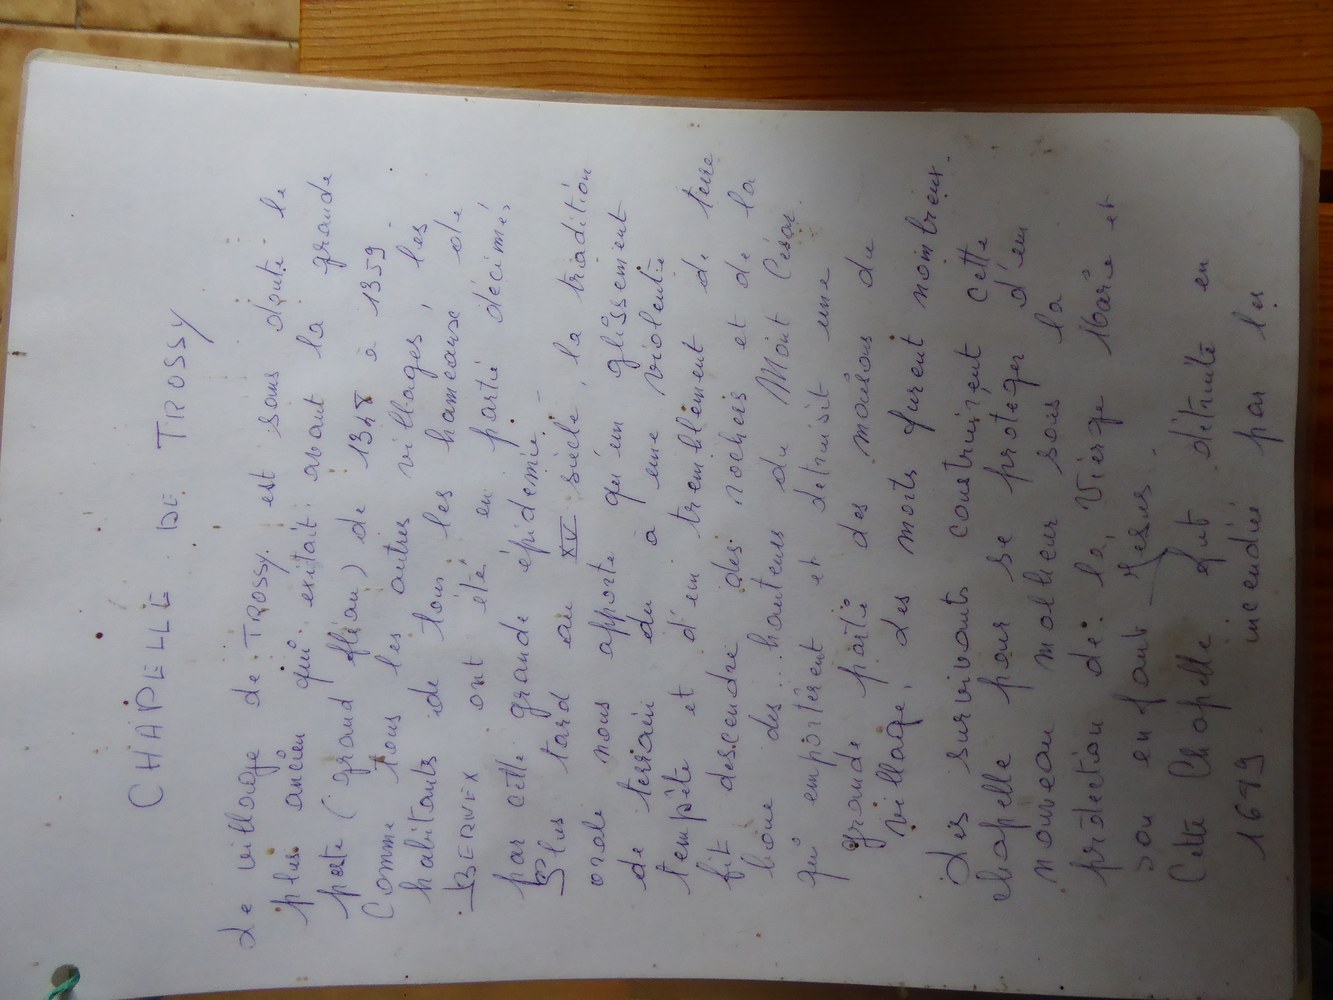 CHAPELLE DE TROSSY
Le village de TROSSY est sans doute le
plus ancien qui exitait avant la grande
peste (grand fléau) de 1348 à 1359
Comme tous les autres villages, les
habitants de tous les hameaux de
BERNEX ont été en partie décimés
par cette grande épidémie.
Plus tard au XV siècle, la tradition
orale nous apporte qu'un glissement
de terrain du à une violente
tempête et d'un tremblement de terre
fit descendre des rochers et de la
boue des... hauteurs du Mont César.
qui emportèrent et détruisit une
grande partie des maisons du
village, des morts furent nombreux.
Les survivants construirent cette
chapelle pour se protéger d'un
nouveau malheur sous la
protection de la Vierge Marie et
son enfant Jésus.
Cette Chapelle fut détruite en
incendiée par les